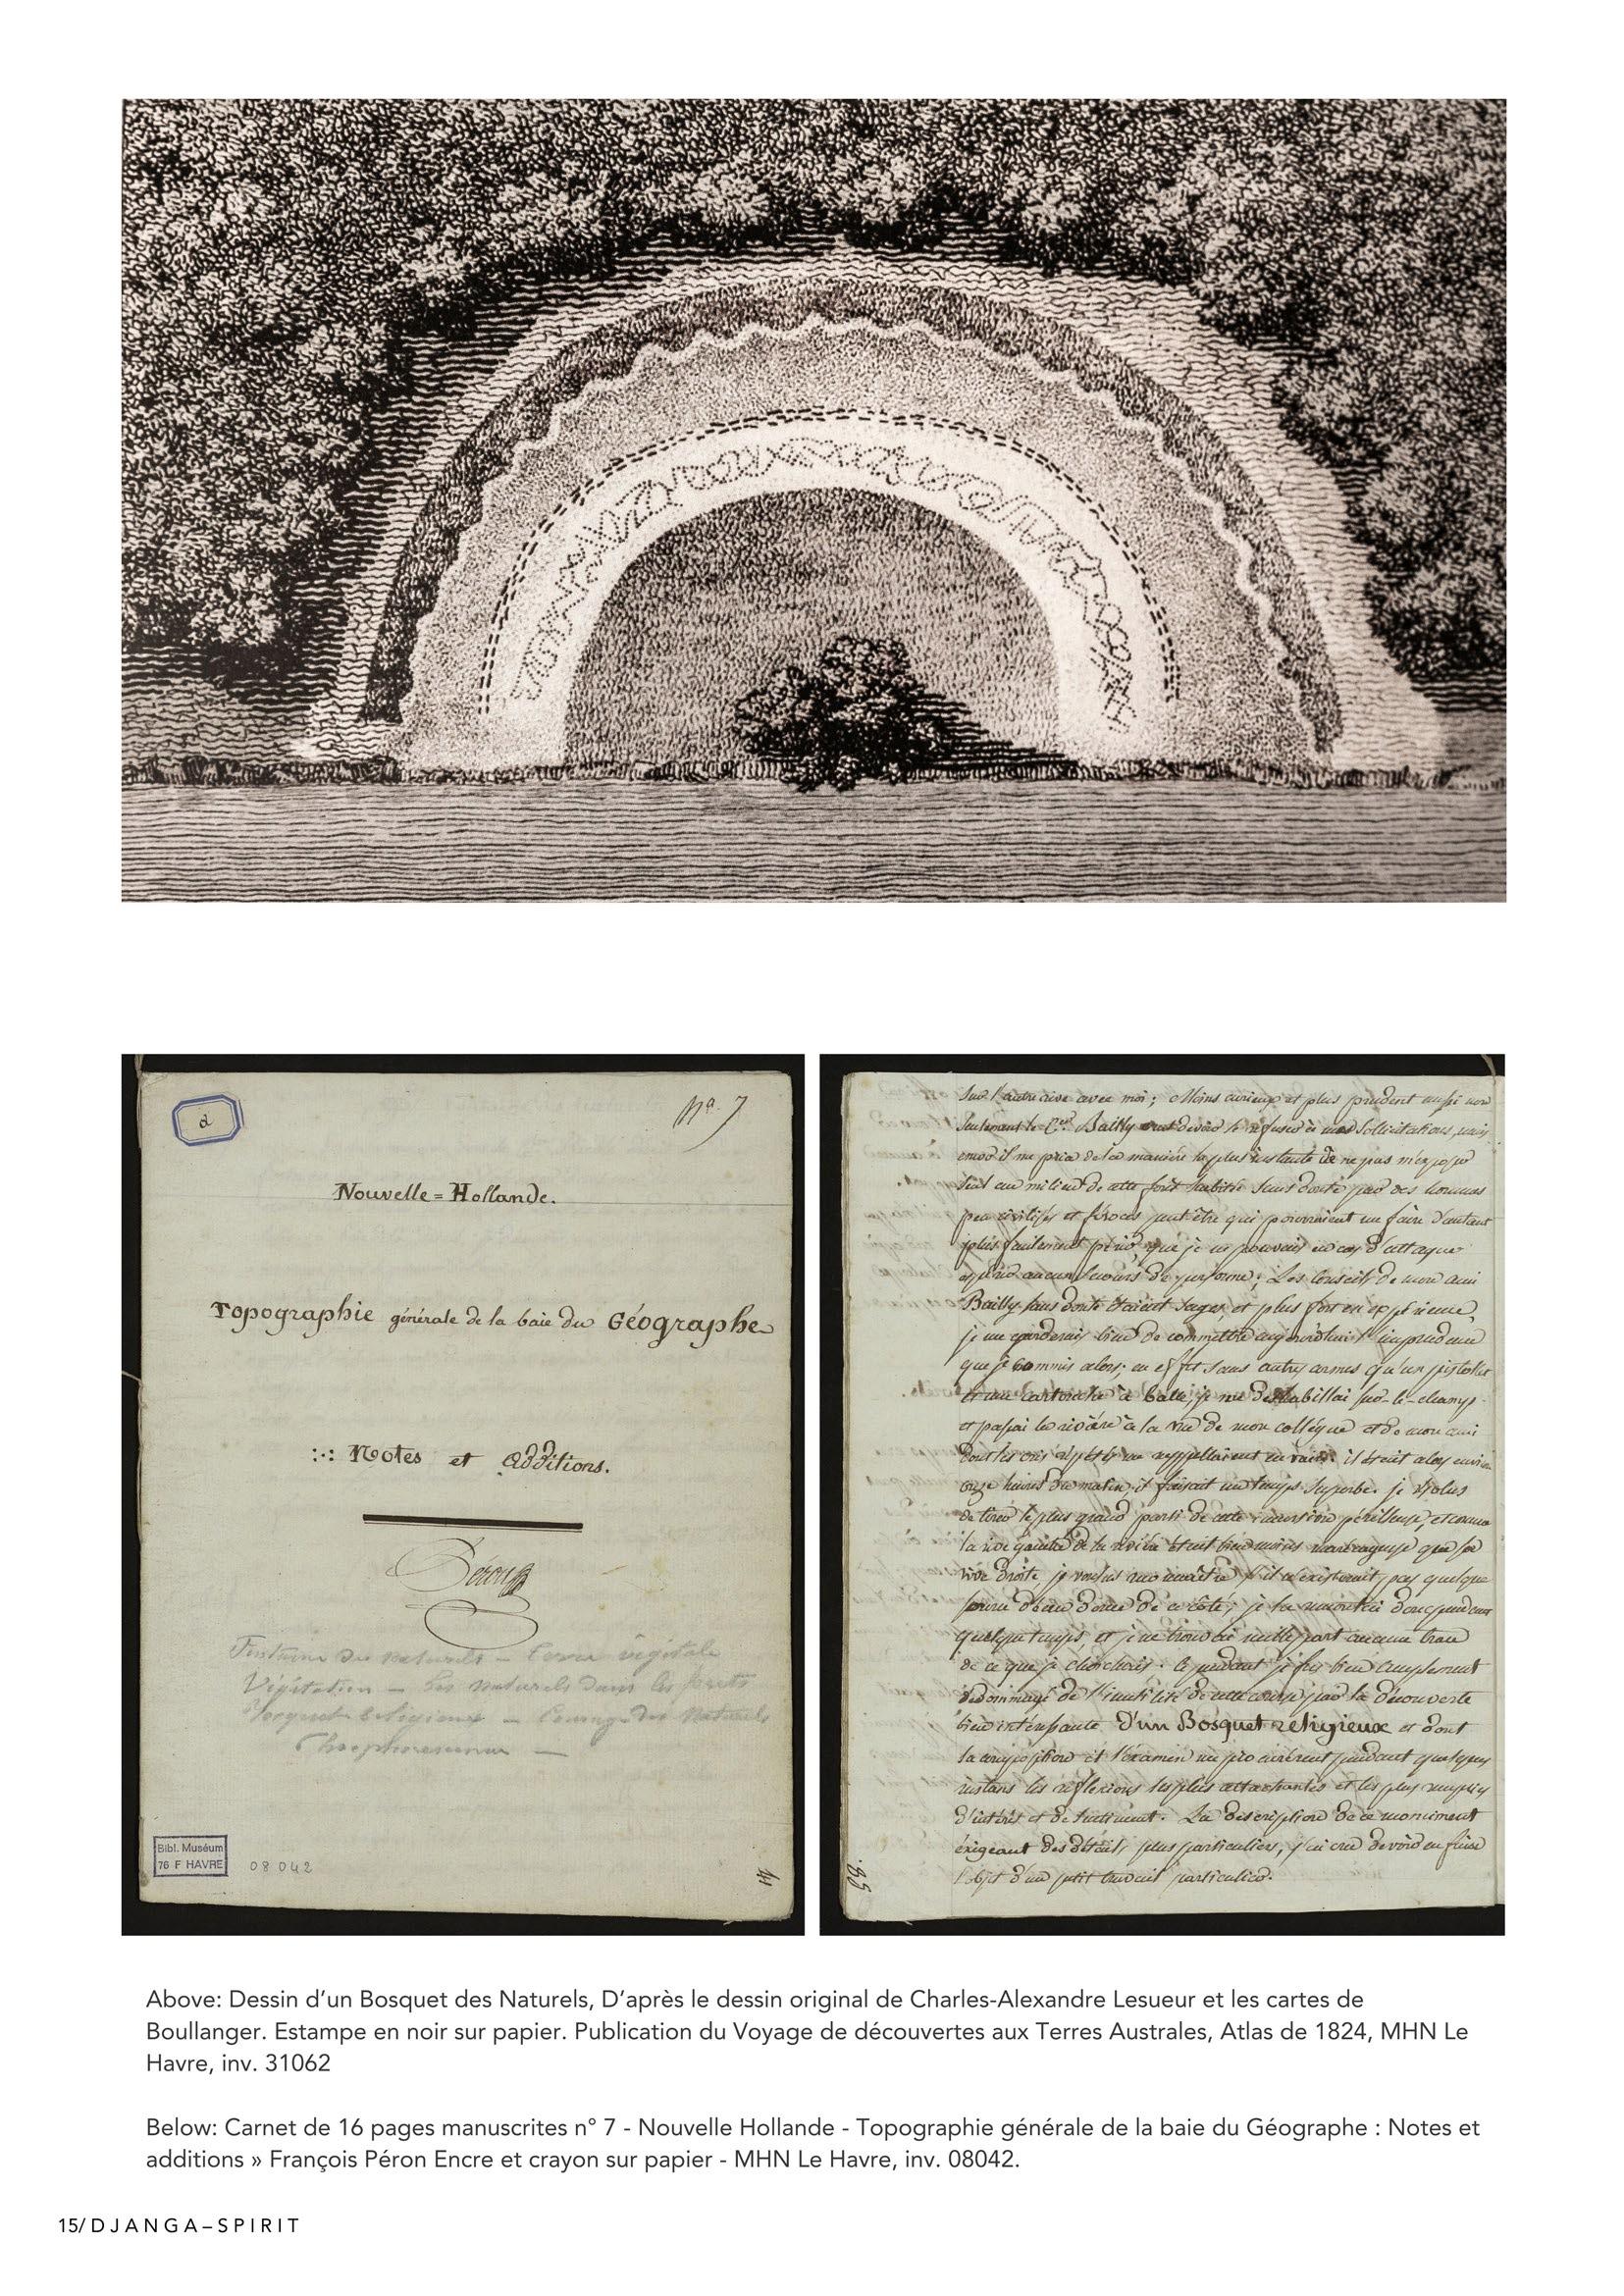 a
No. 7
Nouvelle = Hollande.
Topographie générale de la baie du Géographe
Notes et additions.
Péron
naturels –
Végitation – les naturels dans les forêts
Bosquet Religieux – des naturels
Bibl. Muséum
76 F HAVRE
08042
41
sur l'autre rive avec moi ; Moins curieux et plus prudent aussi non
seulement le Cen. Bailly crut devoir se refuser à mes sollicitations, mais
encor il me pria de la manière la plus instante de ne pas m'exposer
seul au milieu de cette forêt habitée sans doute par des hommes
peu civilisés et féroces peut être qui pourroient me faire d'autant
plus facilement périr, que je ne pouvais en cas d'attaque
espérer aucun secours de personne ; Les conseils de mon ami
Bailly sans doute étaient sages, et plus fort en expérience,
je me garderais bien de commettre aujourd'hui l'imprudence
que je commis alors ; en effet sans autres armes qu'un pistolet
et une cartouche à balle, je me deshabillai sur-le-champ
et passai la rivière à la vue de mon collègue et de mon ami
dont les cris répétés me rappellaient en vain. il étoit alors environ
onze heures du matin, il faisait un temps superbe. je résolus
de tirer le plus grand parti de cette incursion périlleuse, et comme
la rive gauche de la rivière était bien moins marécageuse que sa
rive droite je voulus reconnaitre s'il n'existerait pas quelque
source d'eau douce de ce côté ; je la remontai donc pendant
quelque temps, et je ne trouvai nulle part aucune trace
de ce que je cherchais. Cependant je fus bien amplement
dédommagé de l'inutilité de cette course par la découverte
bien intéressante d'un Bosquet religieux et dont
la composition et l'examen me procurèrent pendant quelques
instans les réflexions les plus attachantes et les plus remplies
d'intérêt et de sentiment. La description de ce monument
éxigeant des détails plus particuliers, j'ai cru devoir en faire
l'objet d'un petit travail particulier.
Above: Dessin d’un Bosquet des Naturels, D’après le dessin original de Charles-Alexandre Lesueur et les cartes de
Boullanger. Estampe en noir sur papier. Publication du Voyage de découvertes aux Terres Australes, Atlas de 1824, MHN Le
Havre, inv. 31062
Below: Carnet de 16 pages manuscrites n° 7 - Nouvelle Hollande - Topographie générale de la baie du Géographe : Notes et
additions » François Péron Encre et crayon sur papier - MHN Le Havre, inv. 08042.
15/DJANGA–SPIRIT